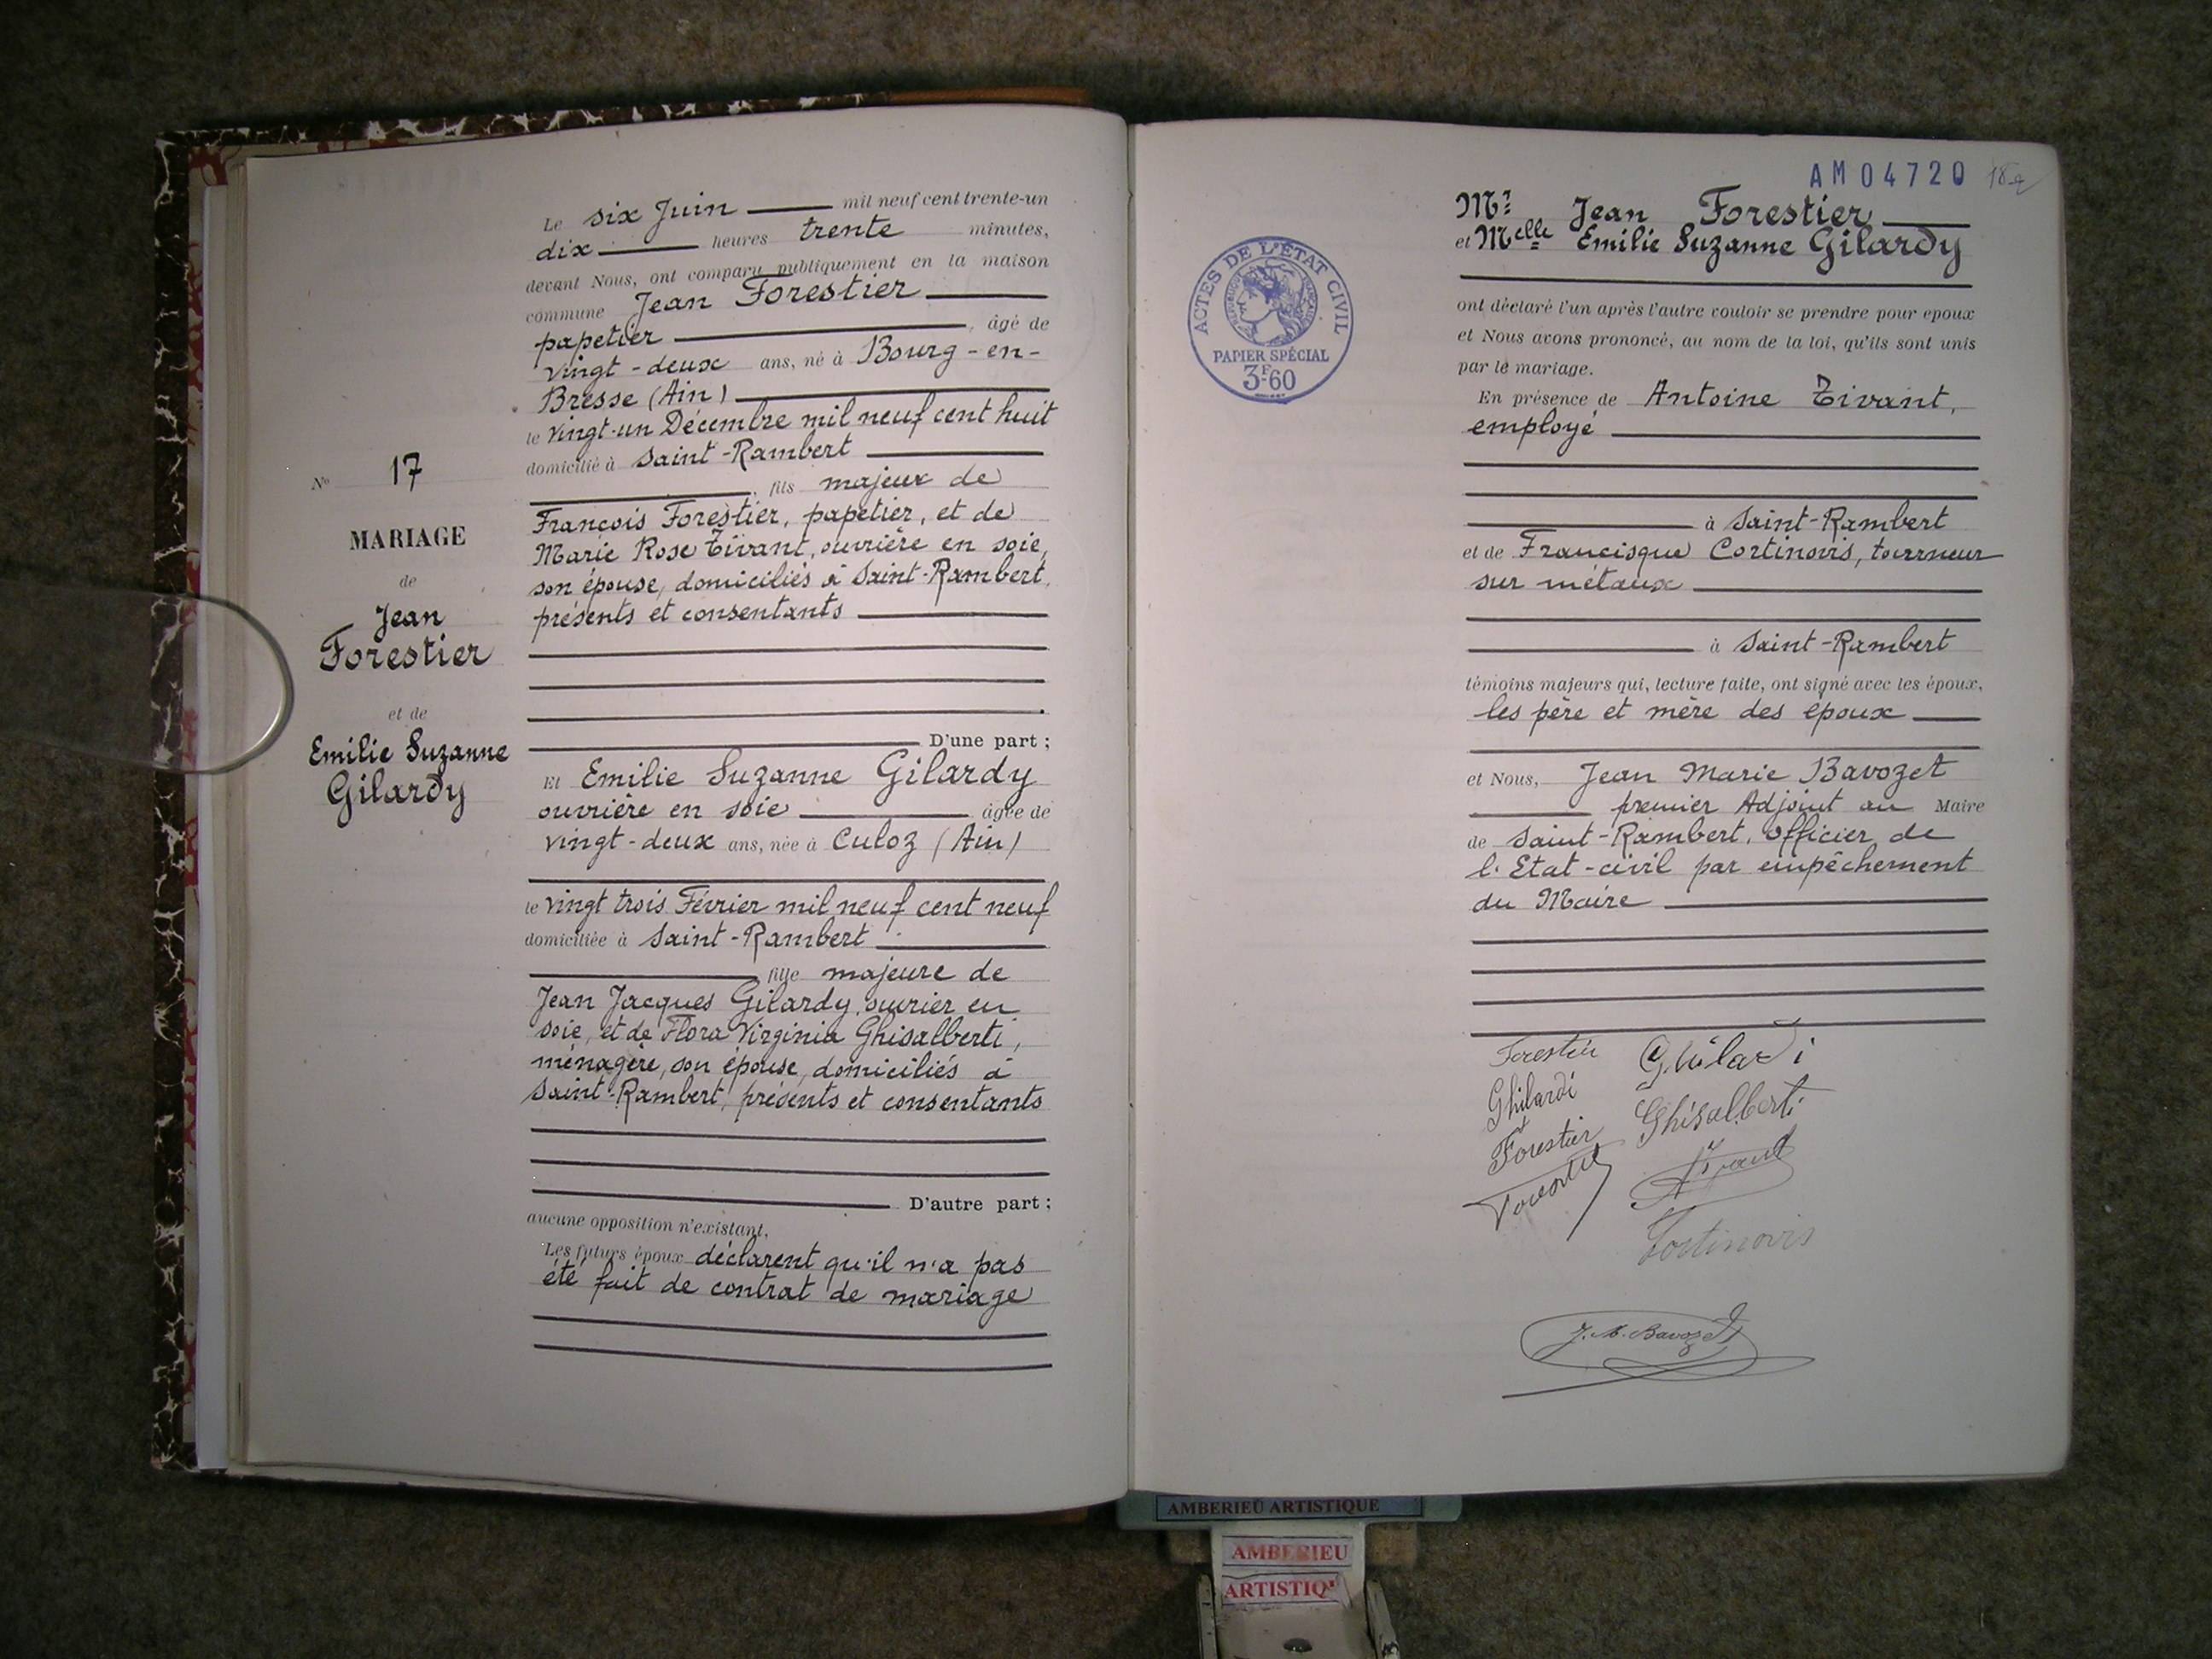 Le six Juin mil neuf cent trente-un
dix heures trente minutes,
devant Nous, ont comparu publiquement en la maison
commune Jean Forestier
papetier, âgé de
vingt-deux ans, né à Bourg-en-
Bresse (Ain)
le vingt-un Décembre mil neuf cent huit
domicilié à Saint-Rambert
, fils majeur de
François Forestier, papetier, et de
Marie Rose Tivant, ouvrière en soie,
son épouse, domiciliés à Saint-Rambert,
présents et consentants
D'une part ;
Et Emilie Suzanne Gilardy
ouvrière en soie âgée de
vingt-deux ans, née à Culoz (Ain)
le vingt trois Février mil neuf cent neuf
domiciliée à Saint-Rambert
, fille majeure de
Jean Jacques Gilardy, ouvrier en
soie, et de Flora Virginia Ghisalberti,
ménagère, son épouse, domiciliés à
Saint-Rambert, présents et consentants
D'autre part ;
aucune opposition n'existant,
Les futurs époux déclarent qu'il n'a pas
été fait de contrat de mariage
No 17
MARIAGE
de
Jean
Forestier
et de
Emilie Suzanne
Gilardy
AM04720
ACTES DE L'ÉTAT CIVIL
RÉPUBLIQUE FRANÇAISE
PAPIER SPÉCIAL
3F60
Mr Jean Forestier
et Melle Emilie Suzanne Gilardy
ont déclaré l'un après l'autre vouloir se prendre pour époux
et Nous avons prononcé, au nom de la loi, qu'ils sont unis
par le mariage.
En présence de Antoine Tivant,
employé
à Saint-Rambert
et de Francisque Cortinovis, tourneur
sur métaux
à Saint-Rambert
témoins majeurs qui, lecture faite, ont signé avec les époux,
les père et mère des époux
et Nous, Jean Marie Bavozet
premier Adjoint au Maire
de Saint-Rambert, Officier de
l'Etat-civil par empêchement
du Maire
Forestier Ghilardi
Ghilardi Ghisalberti
Forestier Tivant
Cortinovis
J. M. Bavozet
AMBERIEU ARTISTIQUE
AMBERIEU
ARTISTIQ